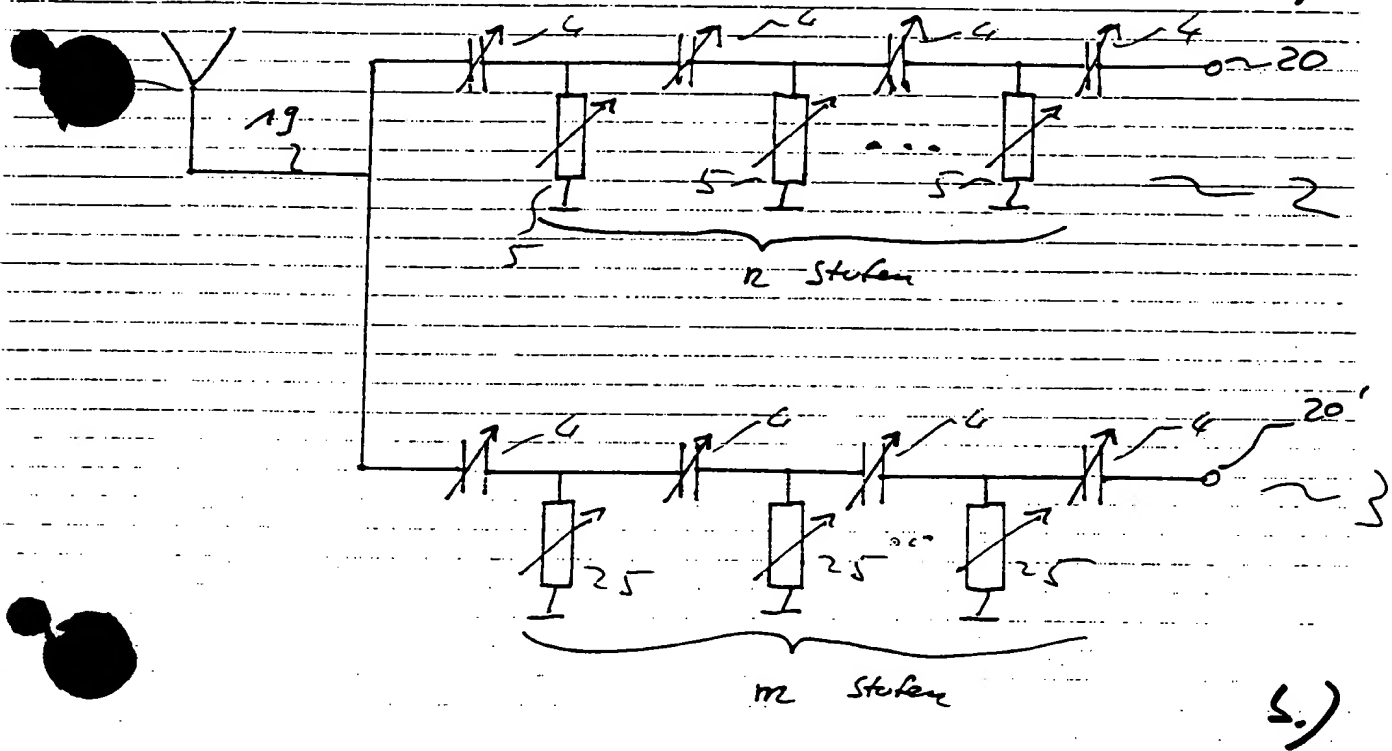 4 4 4 4
20
19
5 5 5
2
n Stufen
4 4 4 4
20'
3
25 25 25
m Stufen
5.)